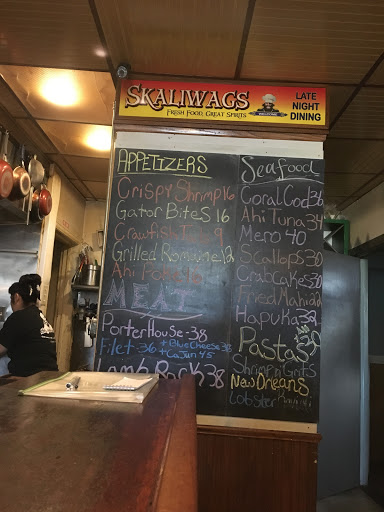 SKALIWAGS
FRESH FOOD, GREAT SPIRITS
LATE
NIGHT
DINING
APPETIZERS
CRISPY SHRIMP 16
GATOR BITES 16
CRAWFISH 9
GRILLED ROMAINE 12
AHI
MEAT
PORTERHOUSE - 38
FILET - 36 + BLUE CHEESE
+ CAJUN 45
LAMB RACK 38
Seafood
CORAL COD 36
AHI TUNA 34
MERO 40
SCALLOPS 30
CRAB CAKES 30
FRIED MAHI 22
HAPUKA 32
PASTAS
SHRIMP N GRITS
NEW ORLEANS
LOBSTER